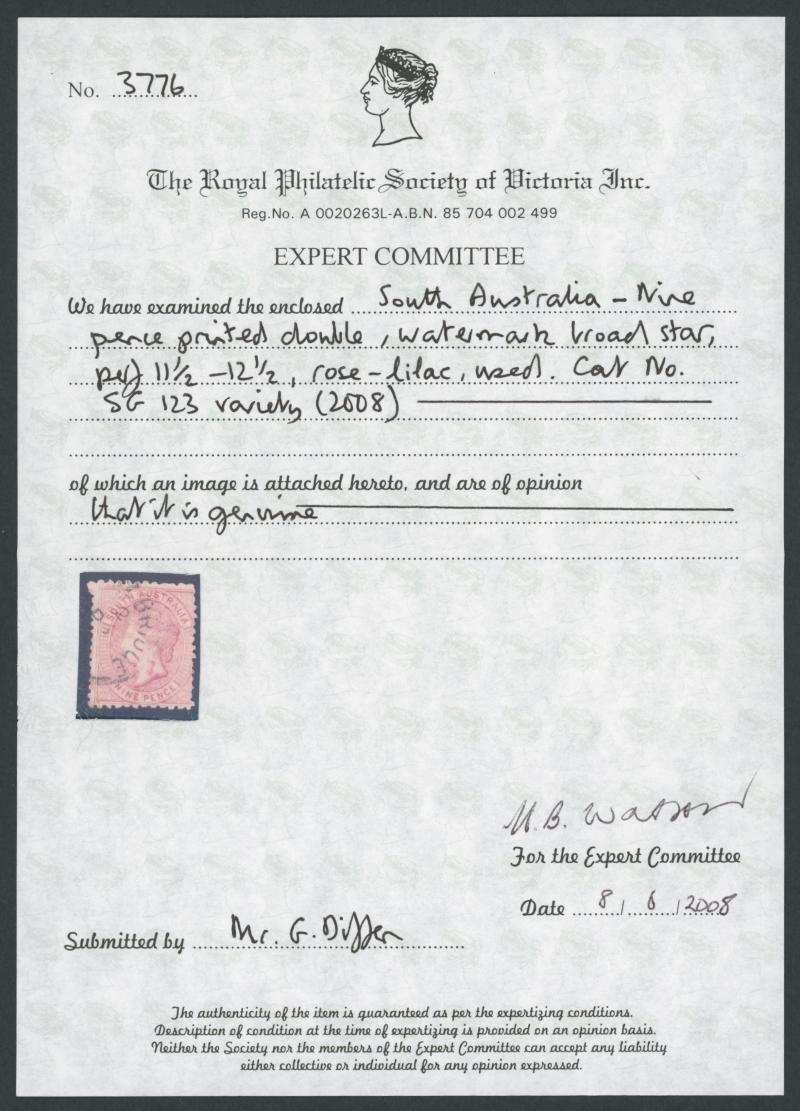 No. 3776
The Royal Philatelic Society of Victoria Inc.
Reg.No. A 0020263L-A.B.N. 85 704 002 499
EXPERT COMMITTEE
We have examined the enclosed South Australia – Nine
pence printed double, watermark broad star,
perf 11½ – 12½, rose-lilac, used. Cat No.
SG 123 variety (2008)
of which an image is attached hereto, and are of opinion
that it is genuine
SOUTH AUSTRALIA
NINE PENCE
M.B. Watson
For the Expert Committee
Date 8/6/2008
Submitted by Mr. G. Differ
The authenticity of the item is guaranteed as per the expertizing conditions.
Description of condition at the time of expertizing is provided on an opinion basis.
Neither the Society nor the members of the Expert Committee can accept any liability
either collective or individual for any opinion expressed.